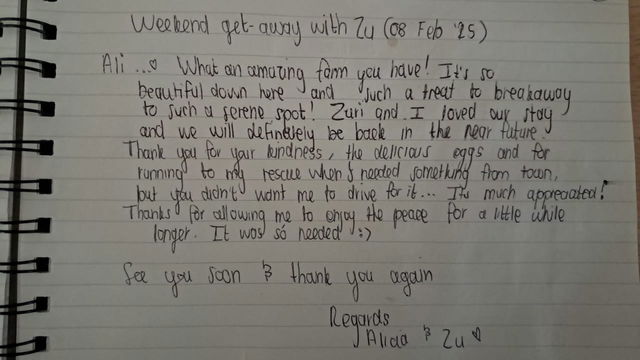 Weekend get-away with Zu (08 Feb '25)
Ali...♡ What an amazing farm you have! It's so
beautiful down here and such a treat to breakaway
to such a serene spot! Zuri and I loved our stay
and we will definitely be back in the near future.
Thank you for your kindness, the delicious eggs and for
running to my rescue when I needed something from town,
but you didn't want me to drive for it... It's much appreciated!
Thanks for allowing me to enjoy the peace for a little while
longer. It was so needed :)
See you soon & thank you again
Regards
Alicia & Zu ♡